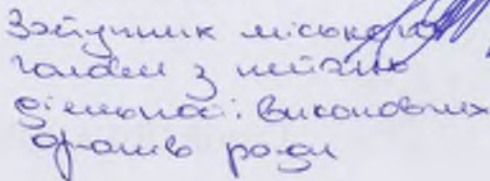 Заступник міського
голови з питань
діяльності виконавчих
органів ради